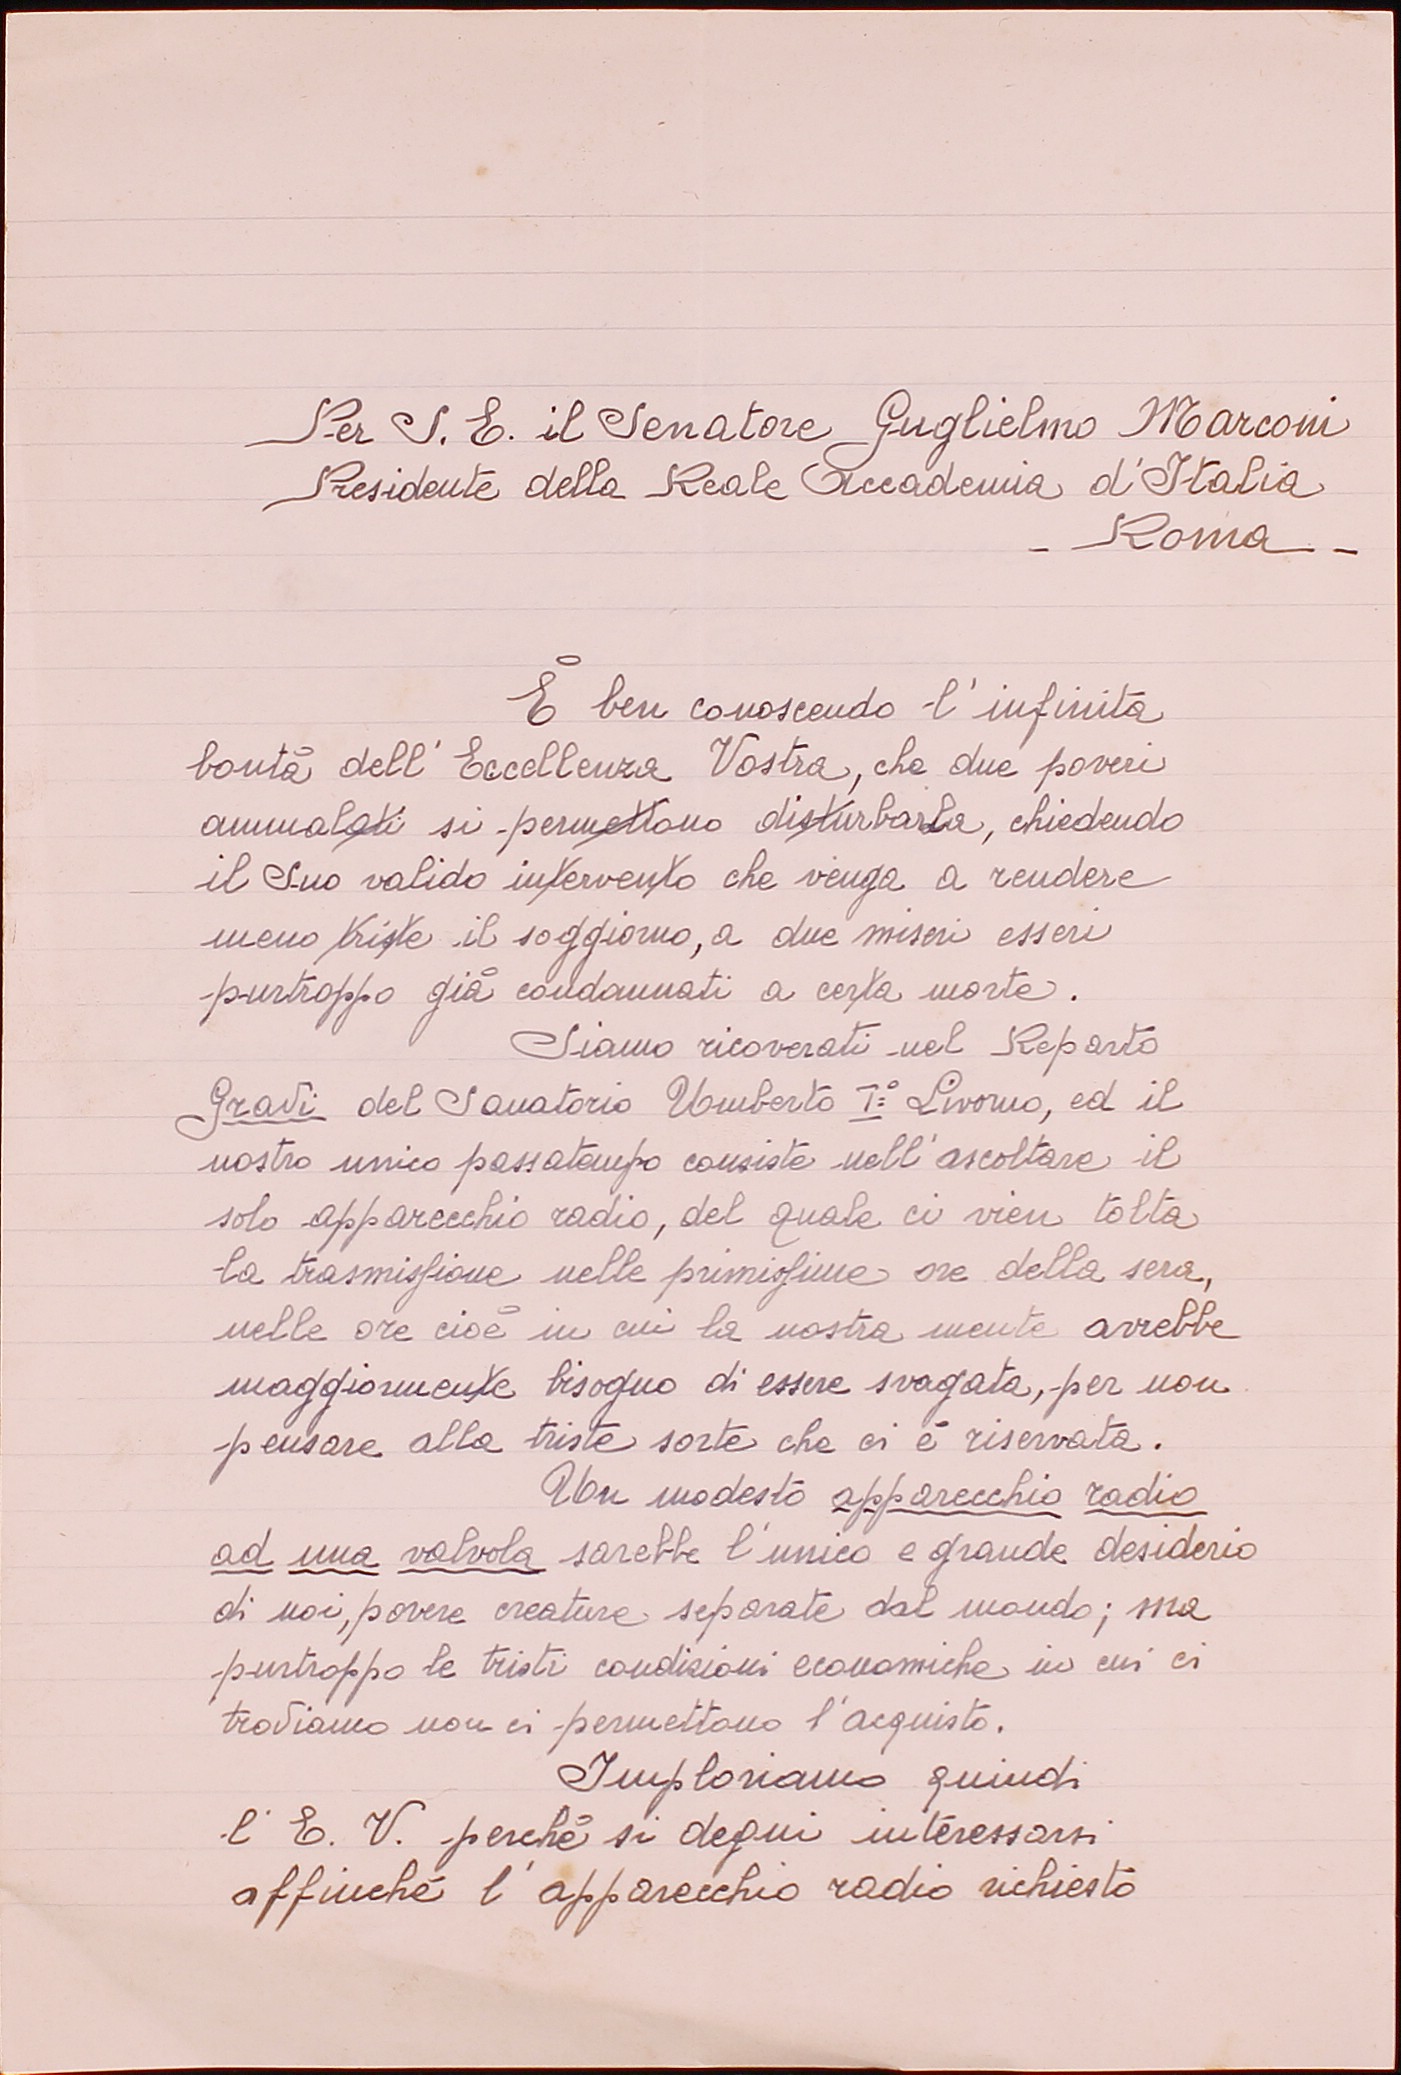 Per S. E. il Senatore Guglielmo Marconi
Presidente della Reale Accademia d'Italia
- Roma -
È ben conoscendo l'infinita
bontà dell'Eccellenza Vostra, che due poveri
ammalati si permettono disturbarLa, chiedendo
il Suo valido intervento che venga a rendere
meno triste il soggiorno, a due miseri esseri
purtroppo già condannati a certa morte.
Siamo ricoverati nel Reparto
Gravi del Sanatorio Umberto I° Livorno, ed il
nostro unico passatempo consiste nell'ascoltare il
solo apparecchio radio, del quale ci vien tolta
la trasmissione nelle primissime ore della sera,
nelle ore cioè in cui la nostra mente avrebbe
maggiormente bisogno di essere svagata, per non
pensare alla triste sorte che ci è riservata.
Un modesto apparecchio radio
ad una valvola sarebbe l'unico e grande desiderio
di noi, povere creature separate dal mondo; ma
purtroppo le tristi condizioni economiche in cui ci
troviamo non ci permettono l'acquisto.
Imploriamo quindi
l'E. V. perchè si degni interessarsi
affinchè l'apparecchio radio richiesto